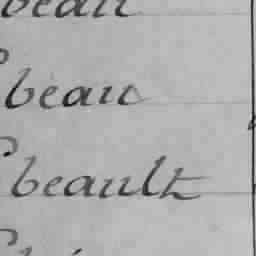 beau
beau
beault